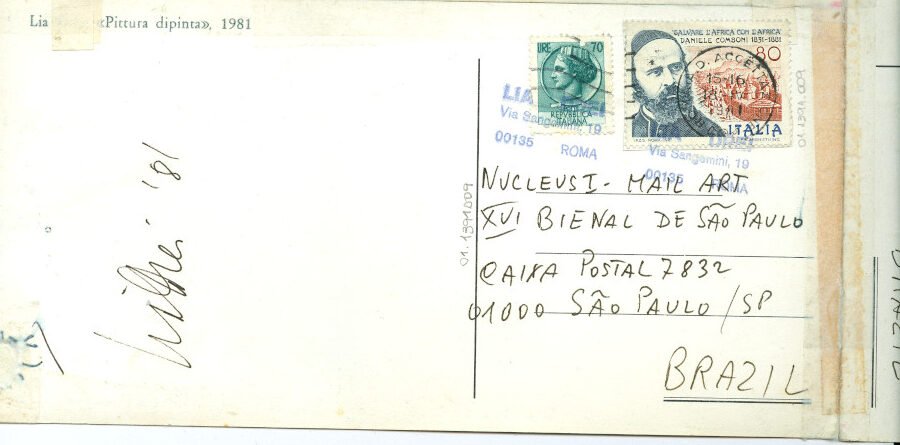 Lia «Pittura dipinta», 1981
LIRE 70
REPVBBLICA
ITALIANA
"SALVARE L'AFRICA CON L'AFRICA"
DANIELE COMBONI 1831-1881
80
ITALIA
15-16
LIA
Via Sangemini, 19
00135 ROMA
Via Sangemini, 19
00135 ROMA
NUCLEUS I - MAIL ART
XVI BIENAL DE SÃO PAULO
CAIXA POSTAL 7832
01000 SÃO PAULO / SP
BRAZIL
01.1391009
01.1391.009
'81